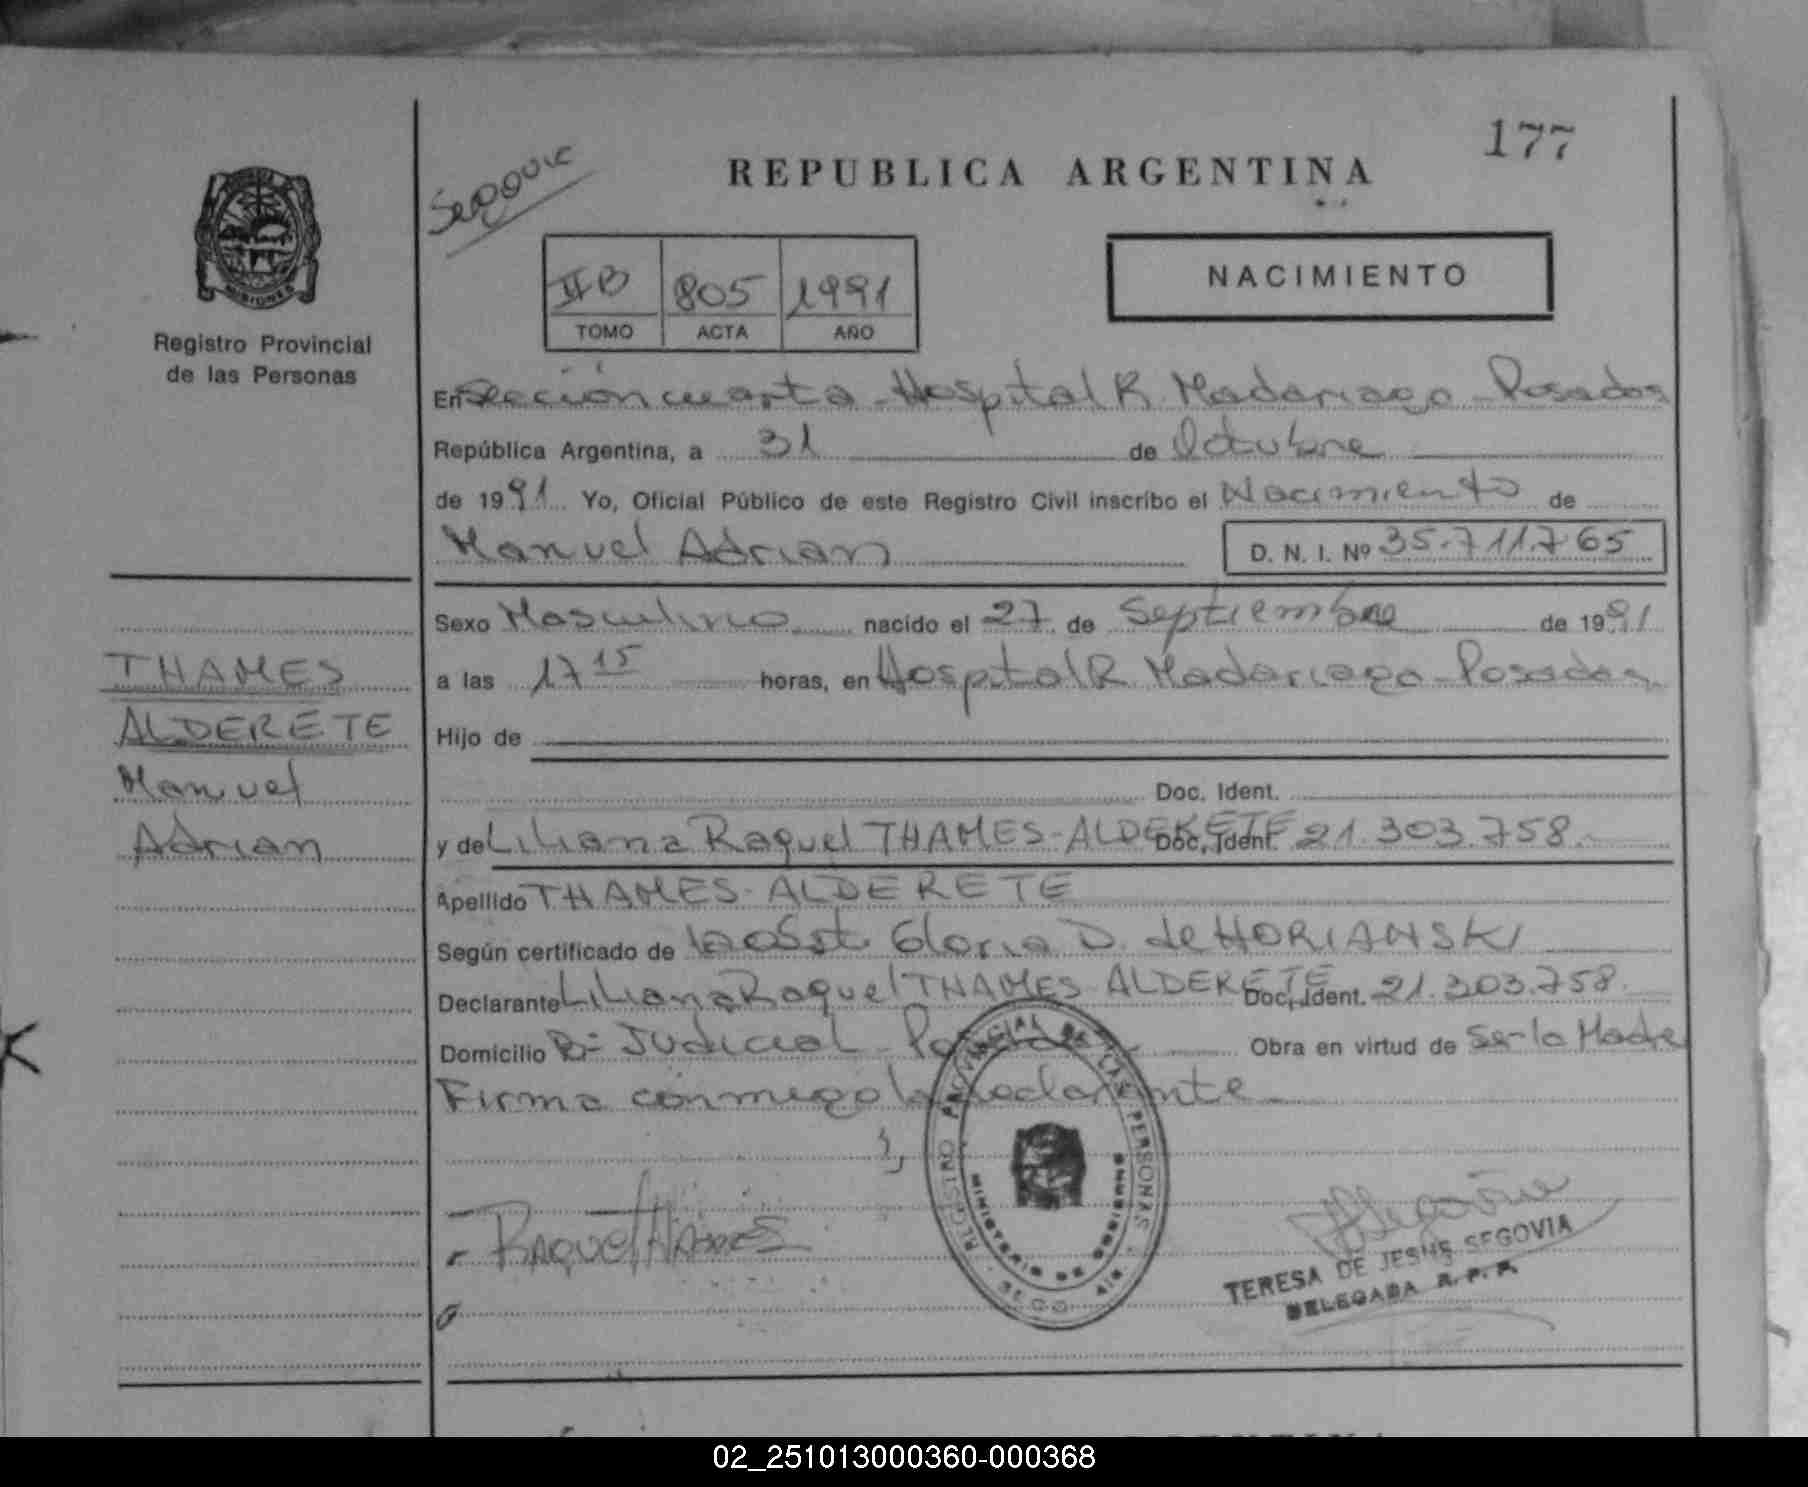 177
REPUBLICA ARGENTINA
II B 805 1991
TOMO ACTA AÑO
NACIMIENTO
MISIONES
Registro Provincial
de las Personas
En Sección cuarta - Hospital R. Madariaga - Posadas
República Argentina, a 31 de Octubre
de 1991 Yo, Oficial Público de este Registro Civil inscribo el Nacimiento de
Manuel Adrian D. N. I. Nº 35.711.765
Sexo Masculino nacido el 27 de Septiembre de 1991
a las 17 15 horas, en Hospital R. Madariaga - Posadas
Hijo de
Doc. Ident.
y de Liliana Raquel THAMES-ALDERETE Doc. Ident. 21.303.758.-
Apellido THAMES-ALDERETE
Según certificado de la obst. Gloria D. de HORIANSKI
Declarante Liliana Raquel THAMES-ALDERETE Doc. Ident. 21.303.758.
Domicilio Bº Judicial - Posadas - Obra en virtud de Ser la Madre
Firma conmigo la declarante -
THAMES
ALDERETE
Manuel
Adrian
Raquel Thames
REGISTRO PROVINCIAL DE LAS PERSONAS
MINISTERIO DE GOBIERNO
TERESA DE JESUS SEGOVIA
DELEGADA R. P. P.
02_251013000360-000368